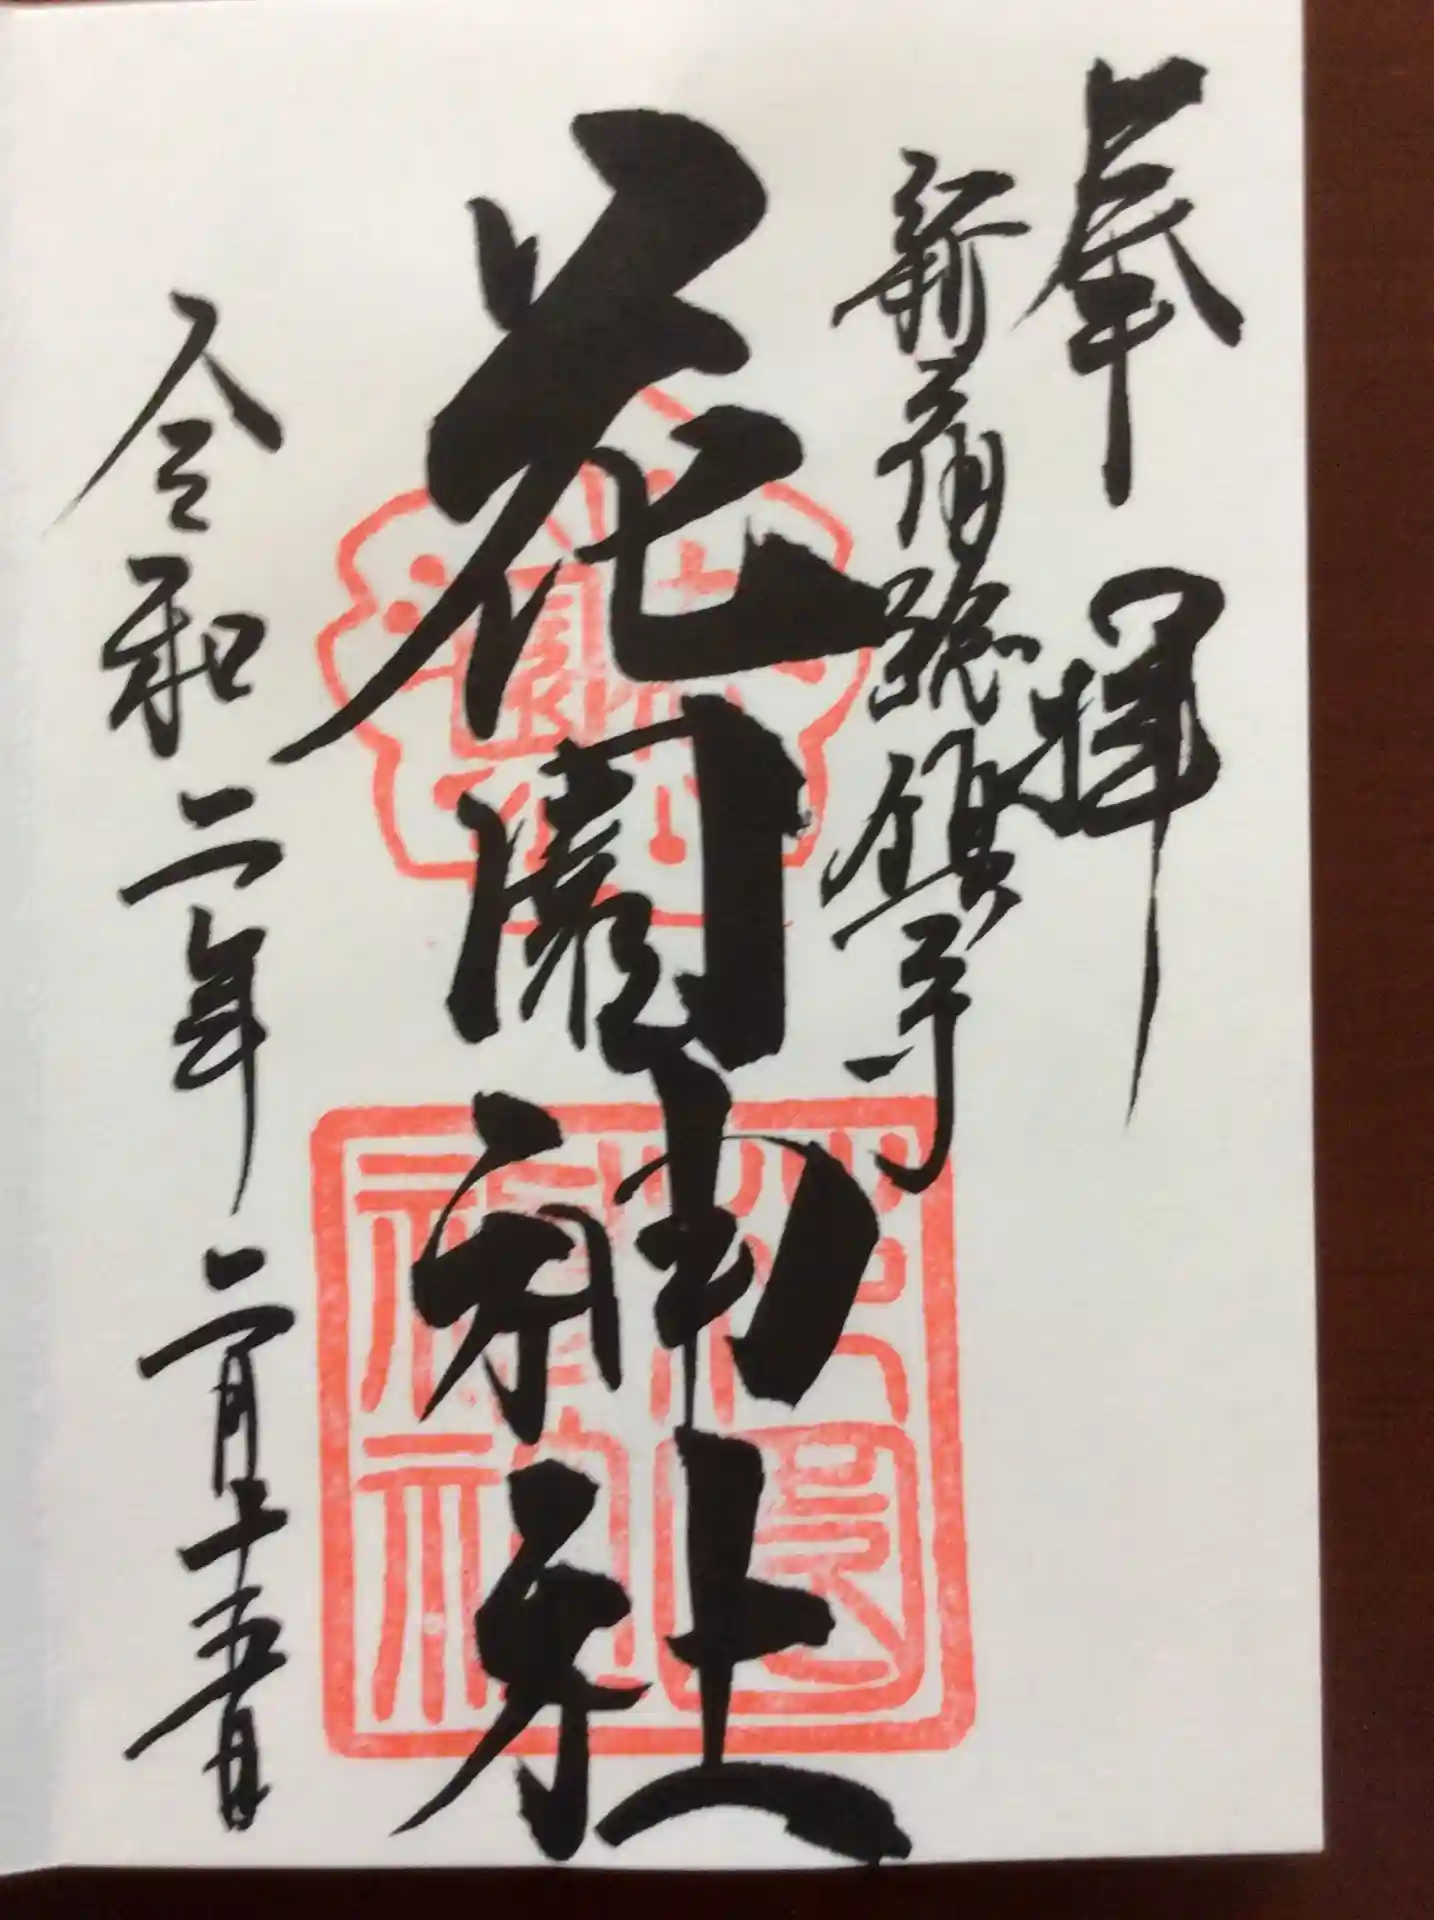 奉拝
新宿総鎮守
花園神社
令和二年二月十五日
花園神社